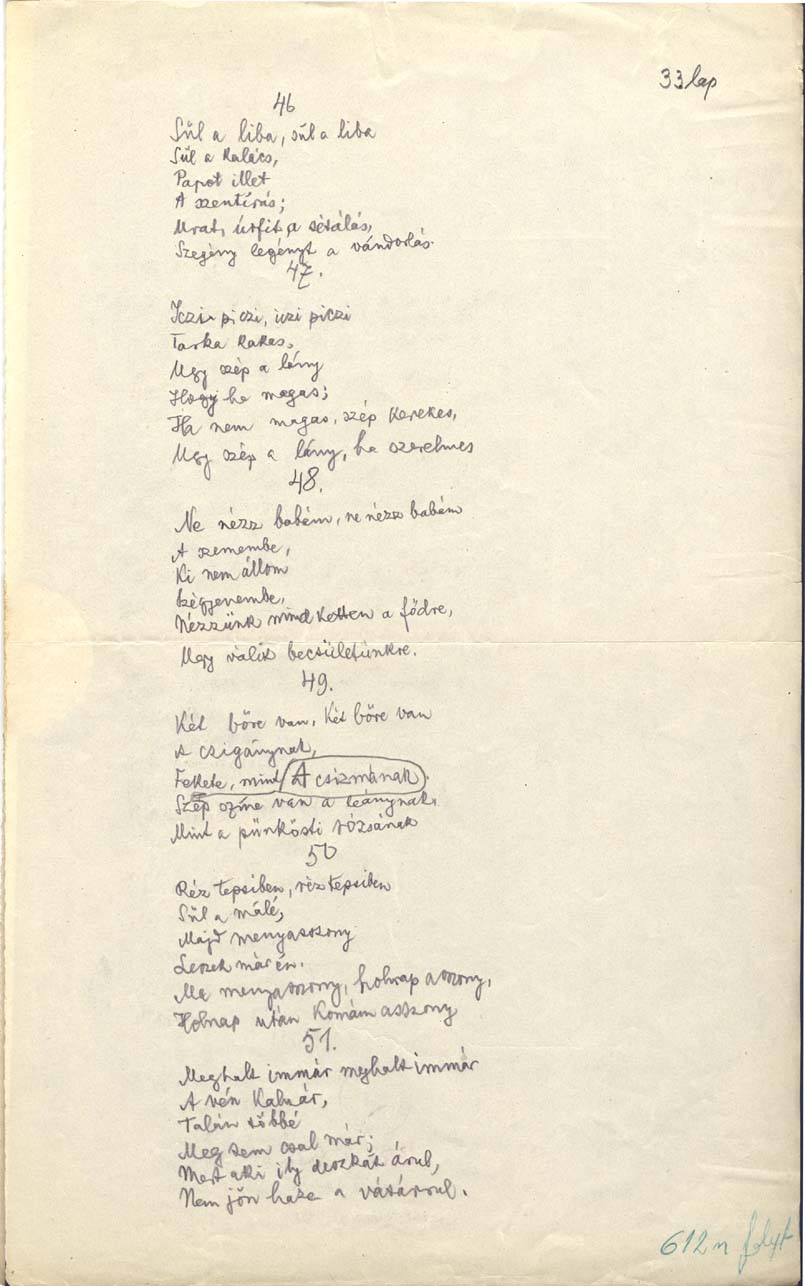 33 lap
46
Sűl a liba, sűl a liba
Sűl a kalács,
Papot illet
A szentírás;
Urat, úrfit a sétálás,
Szegény legényt a vándorlás.
47.
Iczi piczi, iczi piczi
Tarka kakas,
Ugy szép a lány
Hogy ha magas;
Ha nem magas, szép kerekes,
Ugy szép a lány, ha szerelmes
48.
Ne nézz babám, ne nézz babám
A szemembe,
Ki nem állom
szégyenembe,
Nézzünk mind ketten a fődre,
Ugy válik becsületünkre.
49.
Két bőre van, Két bőre van
A czigánynak,
Fekete, mint A csizmának.
Szép színe van a leánynak,
Mint a pünkösti rózsának
50
Réz tepsiben, réz tepsiben
Sűl a málé,
Majd menyasszony
Leszek már én.
Ma menyasszony, holnap asszony,
Holnap után Komám asszony
51.
Meghalt immár meghalt immár
A vén Kalmár,
Talán többé
Meg sem csal már;
Mert aki ily deszkát árul,
Nem jön haza a vásárrul.
612 n folyt